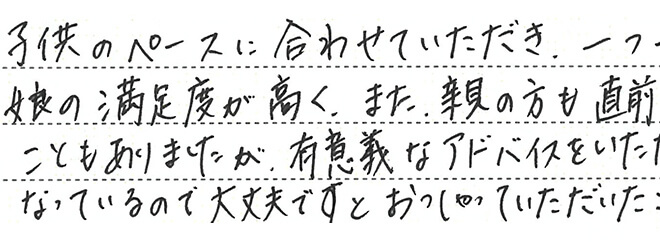 子供のペースに合わせていただき、一つ一
娘の満足度が高く、また、親の方も直前
こともありましたが、有意義なアドバイスをいただ
なっているので大丈夫ですとおっしゃっていただいたこ